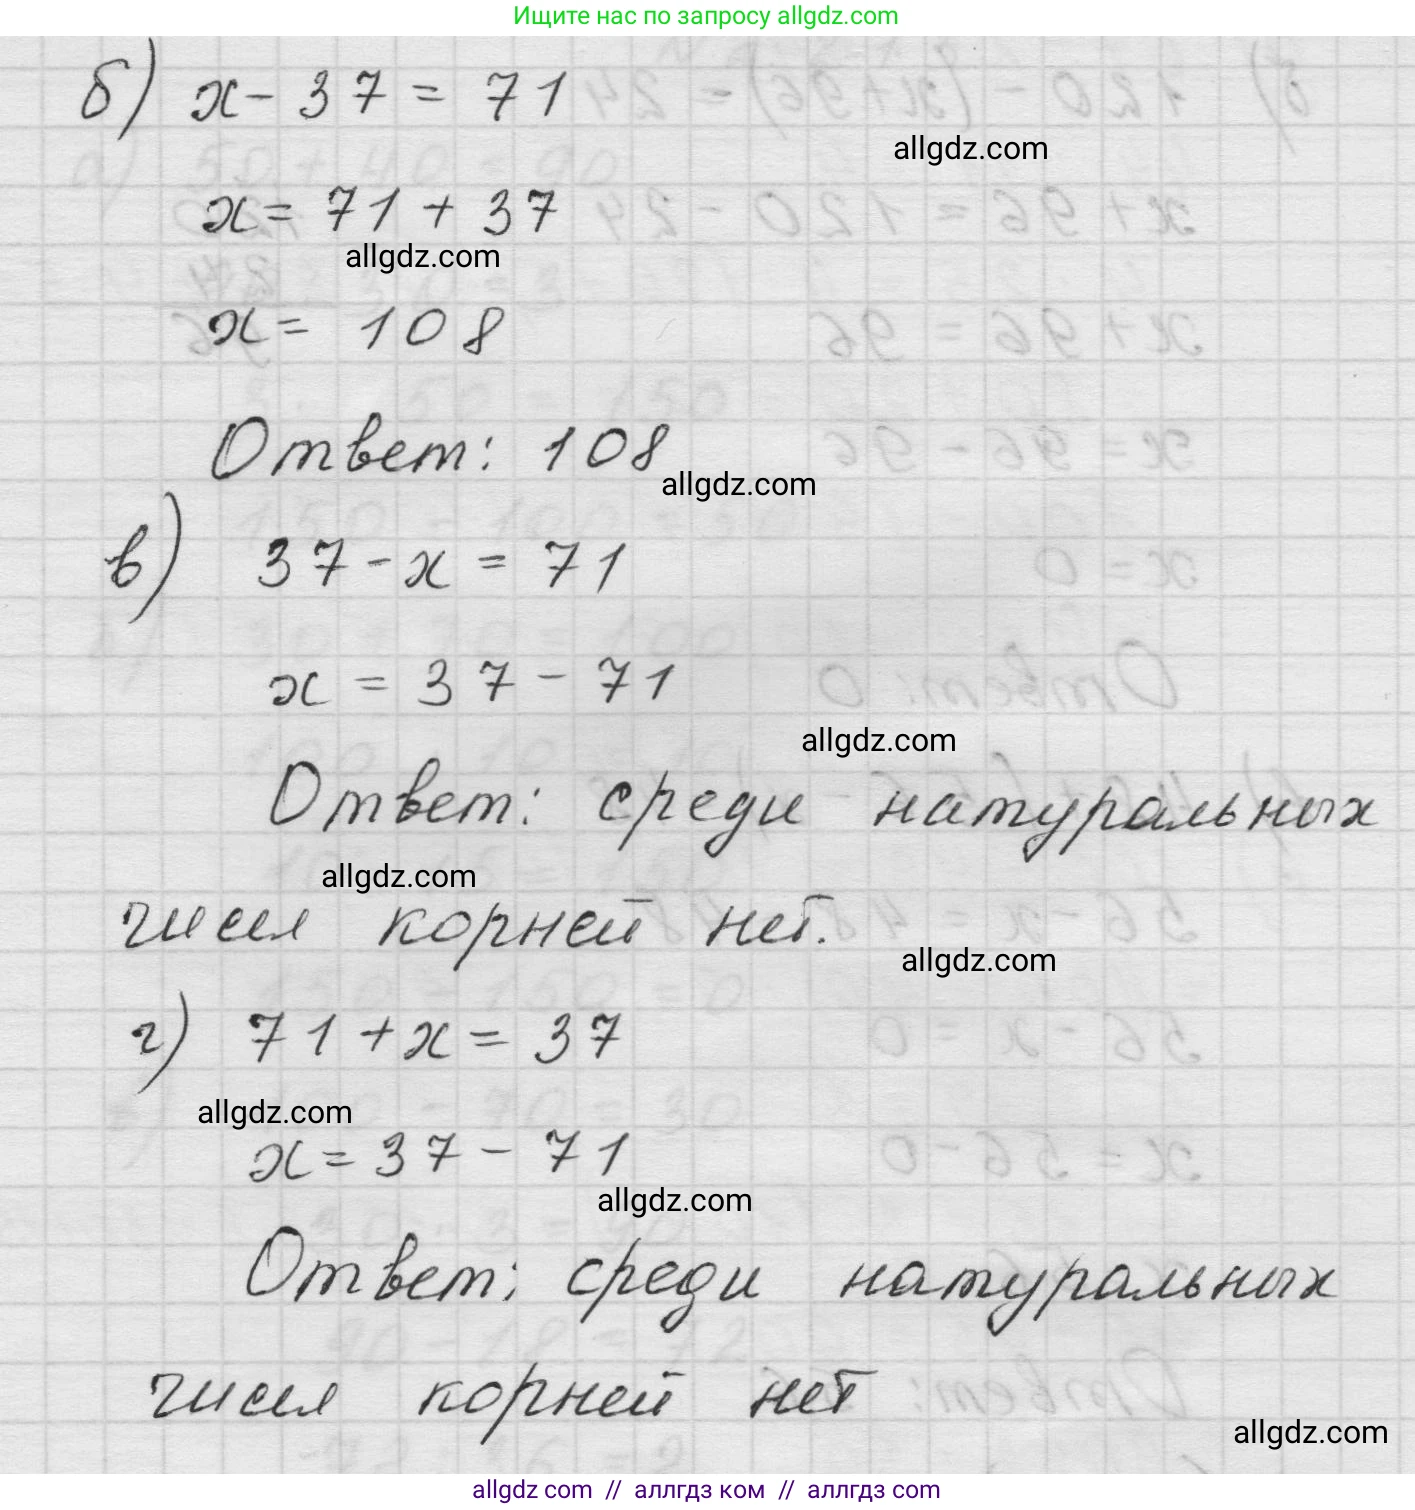 Ищите нас по запросу allgdz.com
б) x - 37 = 71
allgdz.com
x = 71 + 37
allgdz.com
x = 108
Ответ: 108
allgdz.com
в) 37 - x = 71
x = 37 - 71
allgdz.com
Ответ: среди натуральных
allgdz.com
чисел корней нет.
allgdz.com
г) 71 + x = 37
allgdz.com
x = 37 - 71
allgdz.com
Ответ: среди натуральных
чисел корней нет
allgdz.com
allgdz.com // аллгдз ком // аллгдз.com